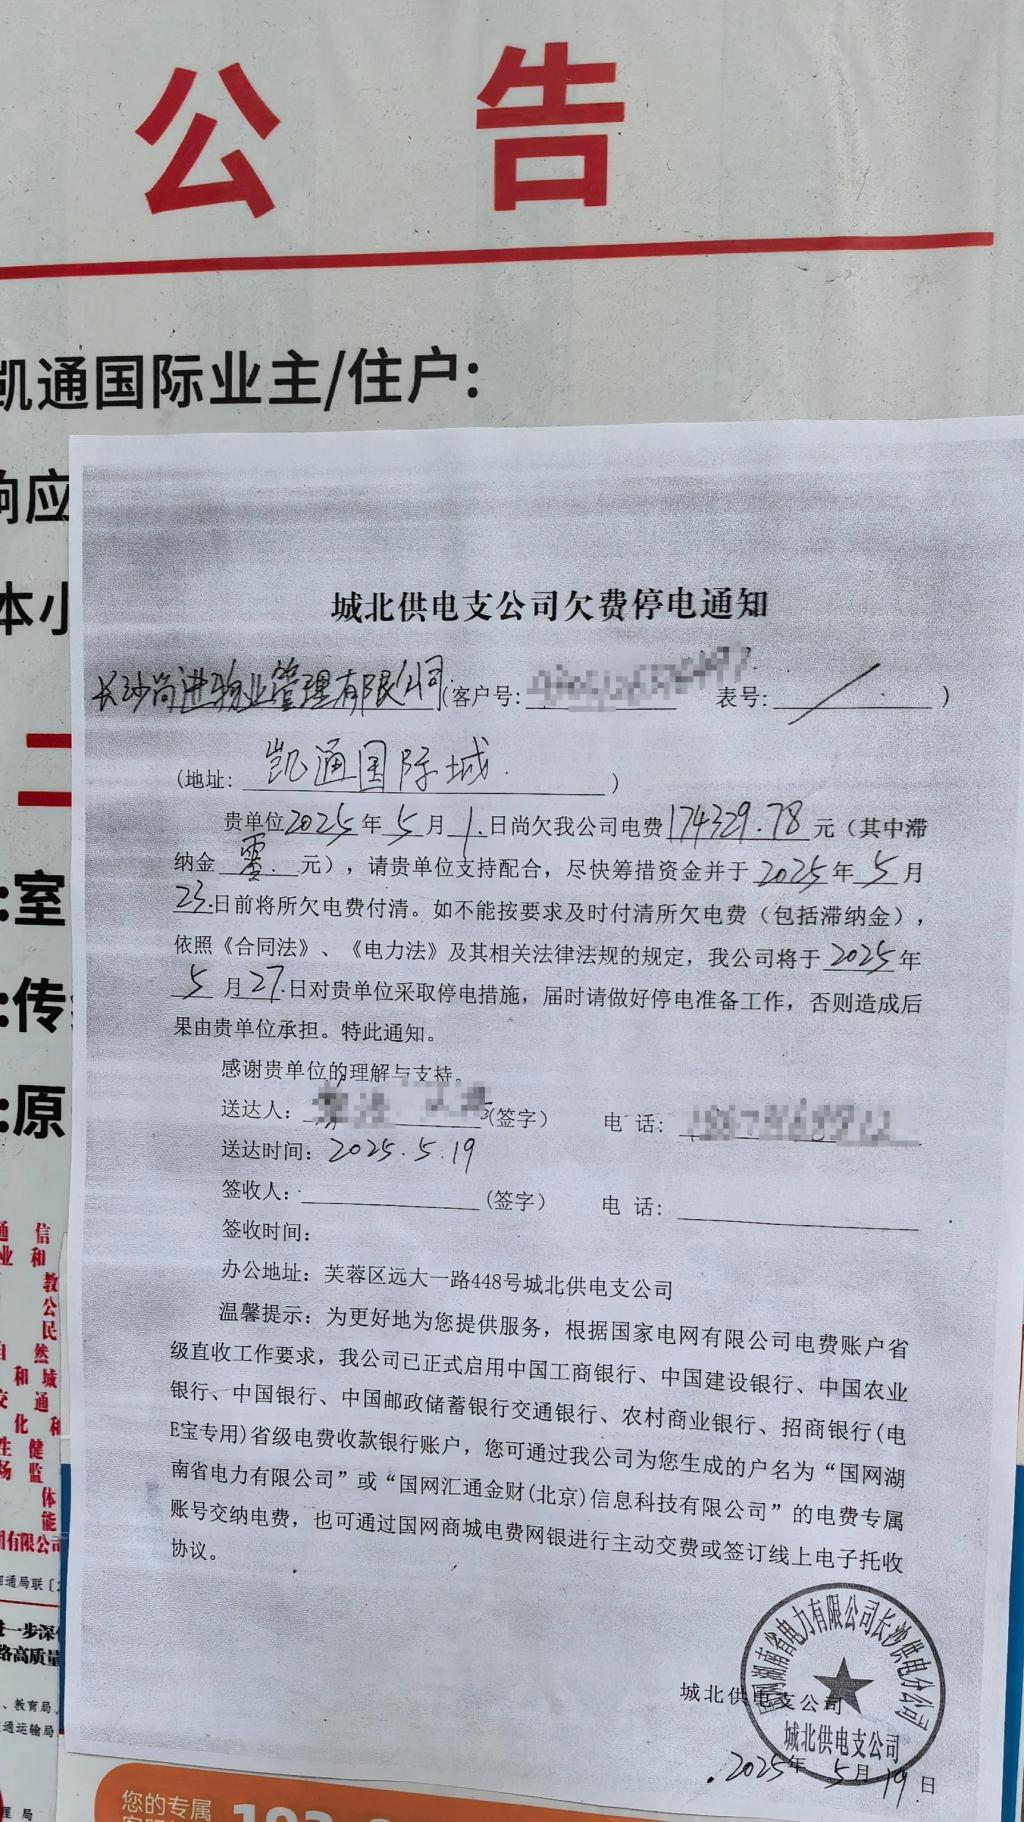 公告
凯通国际业主/住户:
响应
本小
:室
:传
:原
城北供电支公司欠费停电通知
长沙尚进物业管理有限公司(客户号: 表号: / )
(地址: 凯通国际城. )
贵单位2025年5月1日尚欠我公司电费174329.78元（其中滞
纳金零.元），请贵单位支持配合，尽快筹措资金并于2025年5月
23日前将所欠电费付清。如不能按要求及时付清所欠电费（包括滞纳金），
依照《合同法》、《电力法》及其相关法律法规的规定，我公司将于2025年
5月27日对贵单位采取停电措施，届时请做好停电准备工作，否则造成后
果由贵单位承担。特此通知。
感谢贵单位的理解与支持。
送达人: (签字) 电 话:
送达时间: 2025.5.19
签收人: (签字) 电 话:
签收时间:
办公地址: 芙蓉区远大一路448号城北供电支公司
温馨提示: 为更好地为您提供服务，根据国家电网有限公司电费账户省
级直收工作要求，我公司已正式启用中国工商银行、中国建设银行、中国农业
银行、中国银行、中国邮政储蓄银行交通银行、农村商业银行、招商银行(电
E宝专用)省级电费收款银行账户，您可通过我公司为您生成的户名为“国网湖
南省电力有限公司”或“国网汇通金财(北京)信息科技有限公司”的电费专属
账号交纳电费，也可通过国网商城电费网银进行主动交费或签订线上电子托收
协议。
国网湖南省电力有限公司长沙供电分公司
城北供电支公司
城北供电支公司
2025年5月19日
通 信
业 和
教
公
民
然
和 城
交 通
化 和
生 健
场 监
体
能
有限公司
通局联〔
进一步深
路高质量
、教育局、
交通运输局
您的专属